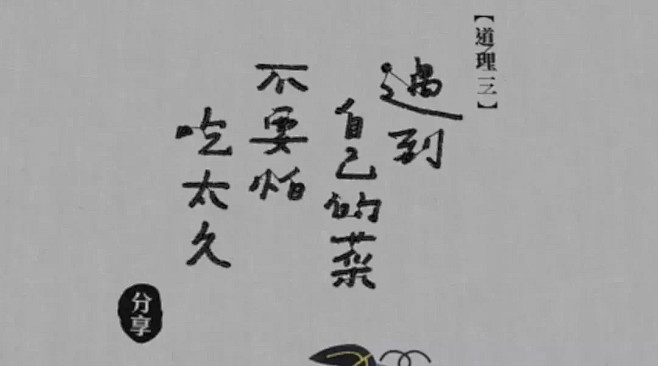 【道理三】
遇到
自己的菜
不要怕
吃太久
分享